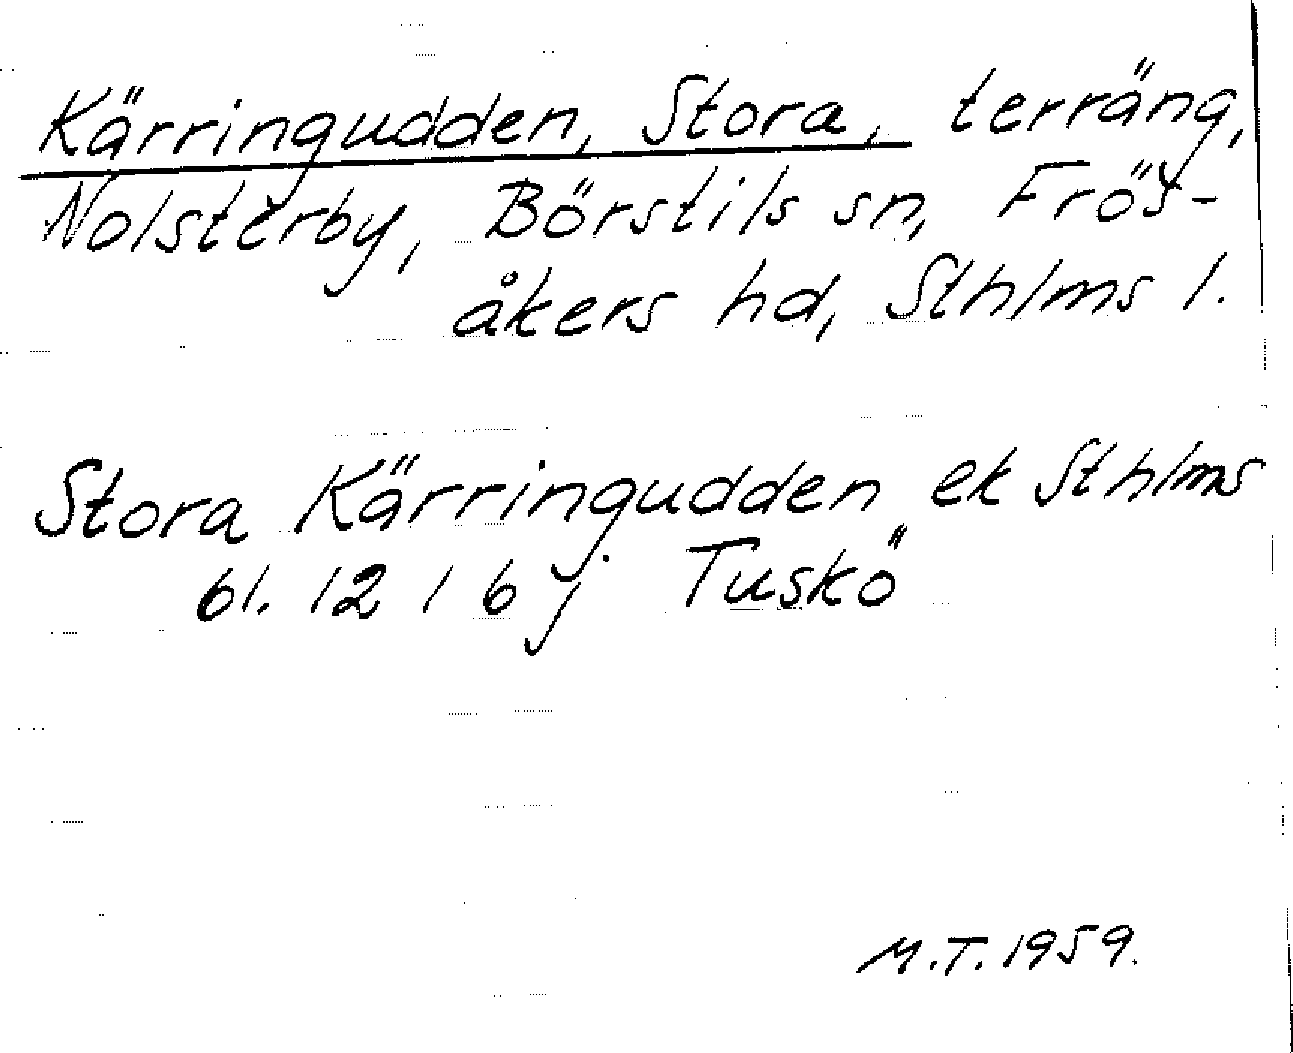 Kärringudden, Stora, terräng,
Nolsterby, Börstils sn, Frös-
åkers hd, Sthlms l.
Stora Kärringudden ek Sthlms
bl. 12 1 6 j. Tuskö
M.T. 1959.